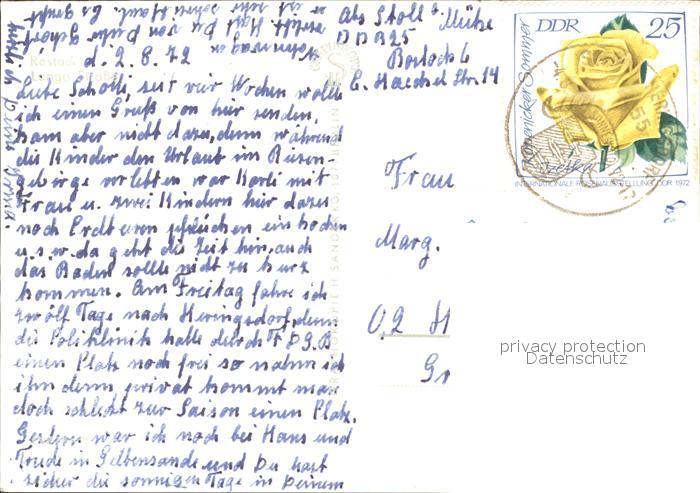 d. 2.8.72
Liebe Scholli, seit vier Wochen wollte
ich einen Gruß von hier senden,
kam aber nicht dazu, denn während
die Kinder den Urlaub im Riesen-
gebirge verlebten war Karli mit
Frau u. zwei Kindern hier dazu
noch Erdbeeren pflücken einkochen
u.s.w. da geht die Zeit hin, auch
das Baden sollte nicht zu kurz
kommen. Am Freitag fahre ich
zwölf Tage nach Heringsdorf, denn
die Poliklinik hatte durch FDGB
einen Platz noch frei so nahm ich
ihn denn privat kommt man
doch schlecht zur Saison einen Platz.
Gestern war ich noch bei Hans und
Trude in Gelbensande und Du hast
sicher die sonnigen Tage in Deinem
Abs Stoll b. Mütze
DDR 25
Rostock 6
E. Haeckel Str. 14
DDR 25
Köpenicker Sommer
INTERNATIONALE ROSENAUSSTELLUNG DDR 1972
Frau
Marg.
privacy protection
Datenschutz